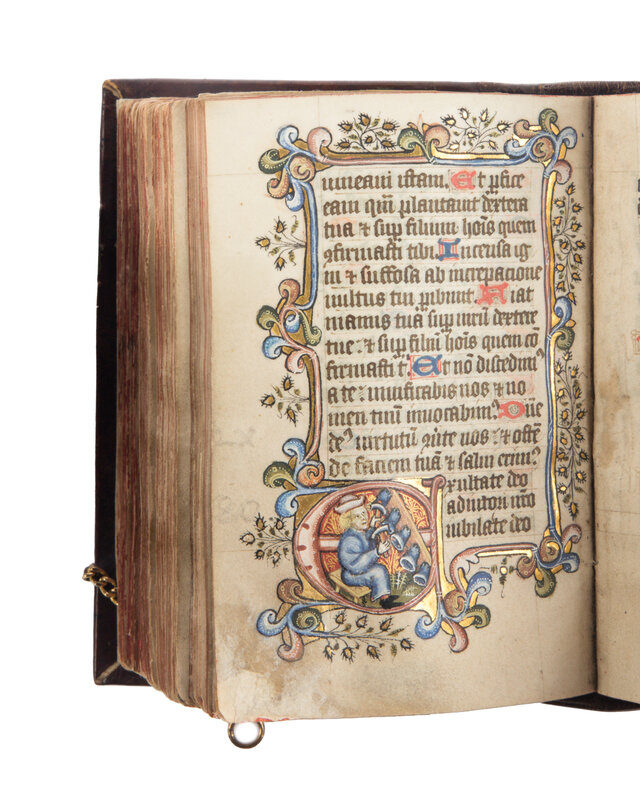 vineam istam. Et ꝑfice
eam qm̄ plantauit dextera
tua ⁊ suꝑ filium hoīs quem
ꝯfirmasti tibi. Incensa ig
ni ⁊ suffosa ab increpacione
vultus tui ꝑibunt. Fiat
manus tua suꝑ uirū dextere
tue ⁊ suꝑ filiū hoīs quem cō
firmasti t. Et nō discedimꝰ
a te: uiuificabis nos ⁊ no
men tuum inuocabimꝰ. Dn̄e
deꝰ uirtutū ꝯūte nos: ⁊ ostē
de faciem tuā ⁊ salui erimꝰ
Exultate deo
adiutori nr̄o
iubilate deo